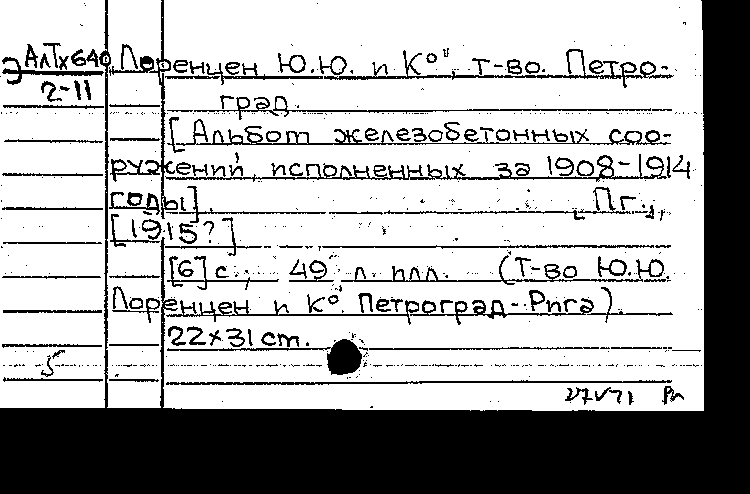 Э АлТх640
2-11
Лоренцен Ю.Ю. и К°, т-во. Петро-
град.
[Альбом железобетонных соо-
ружений, исполненных за 1908-1914
годы]. [Пг.],
[1915?]
[6] с., 49 л. илл. (Т-во Ю.Ю.
Лоренцен и К°. Петроград-Рига).
22×31 cm.
5
27V71